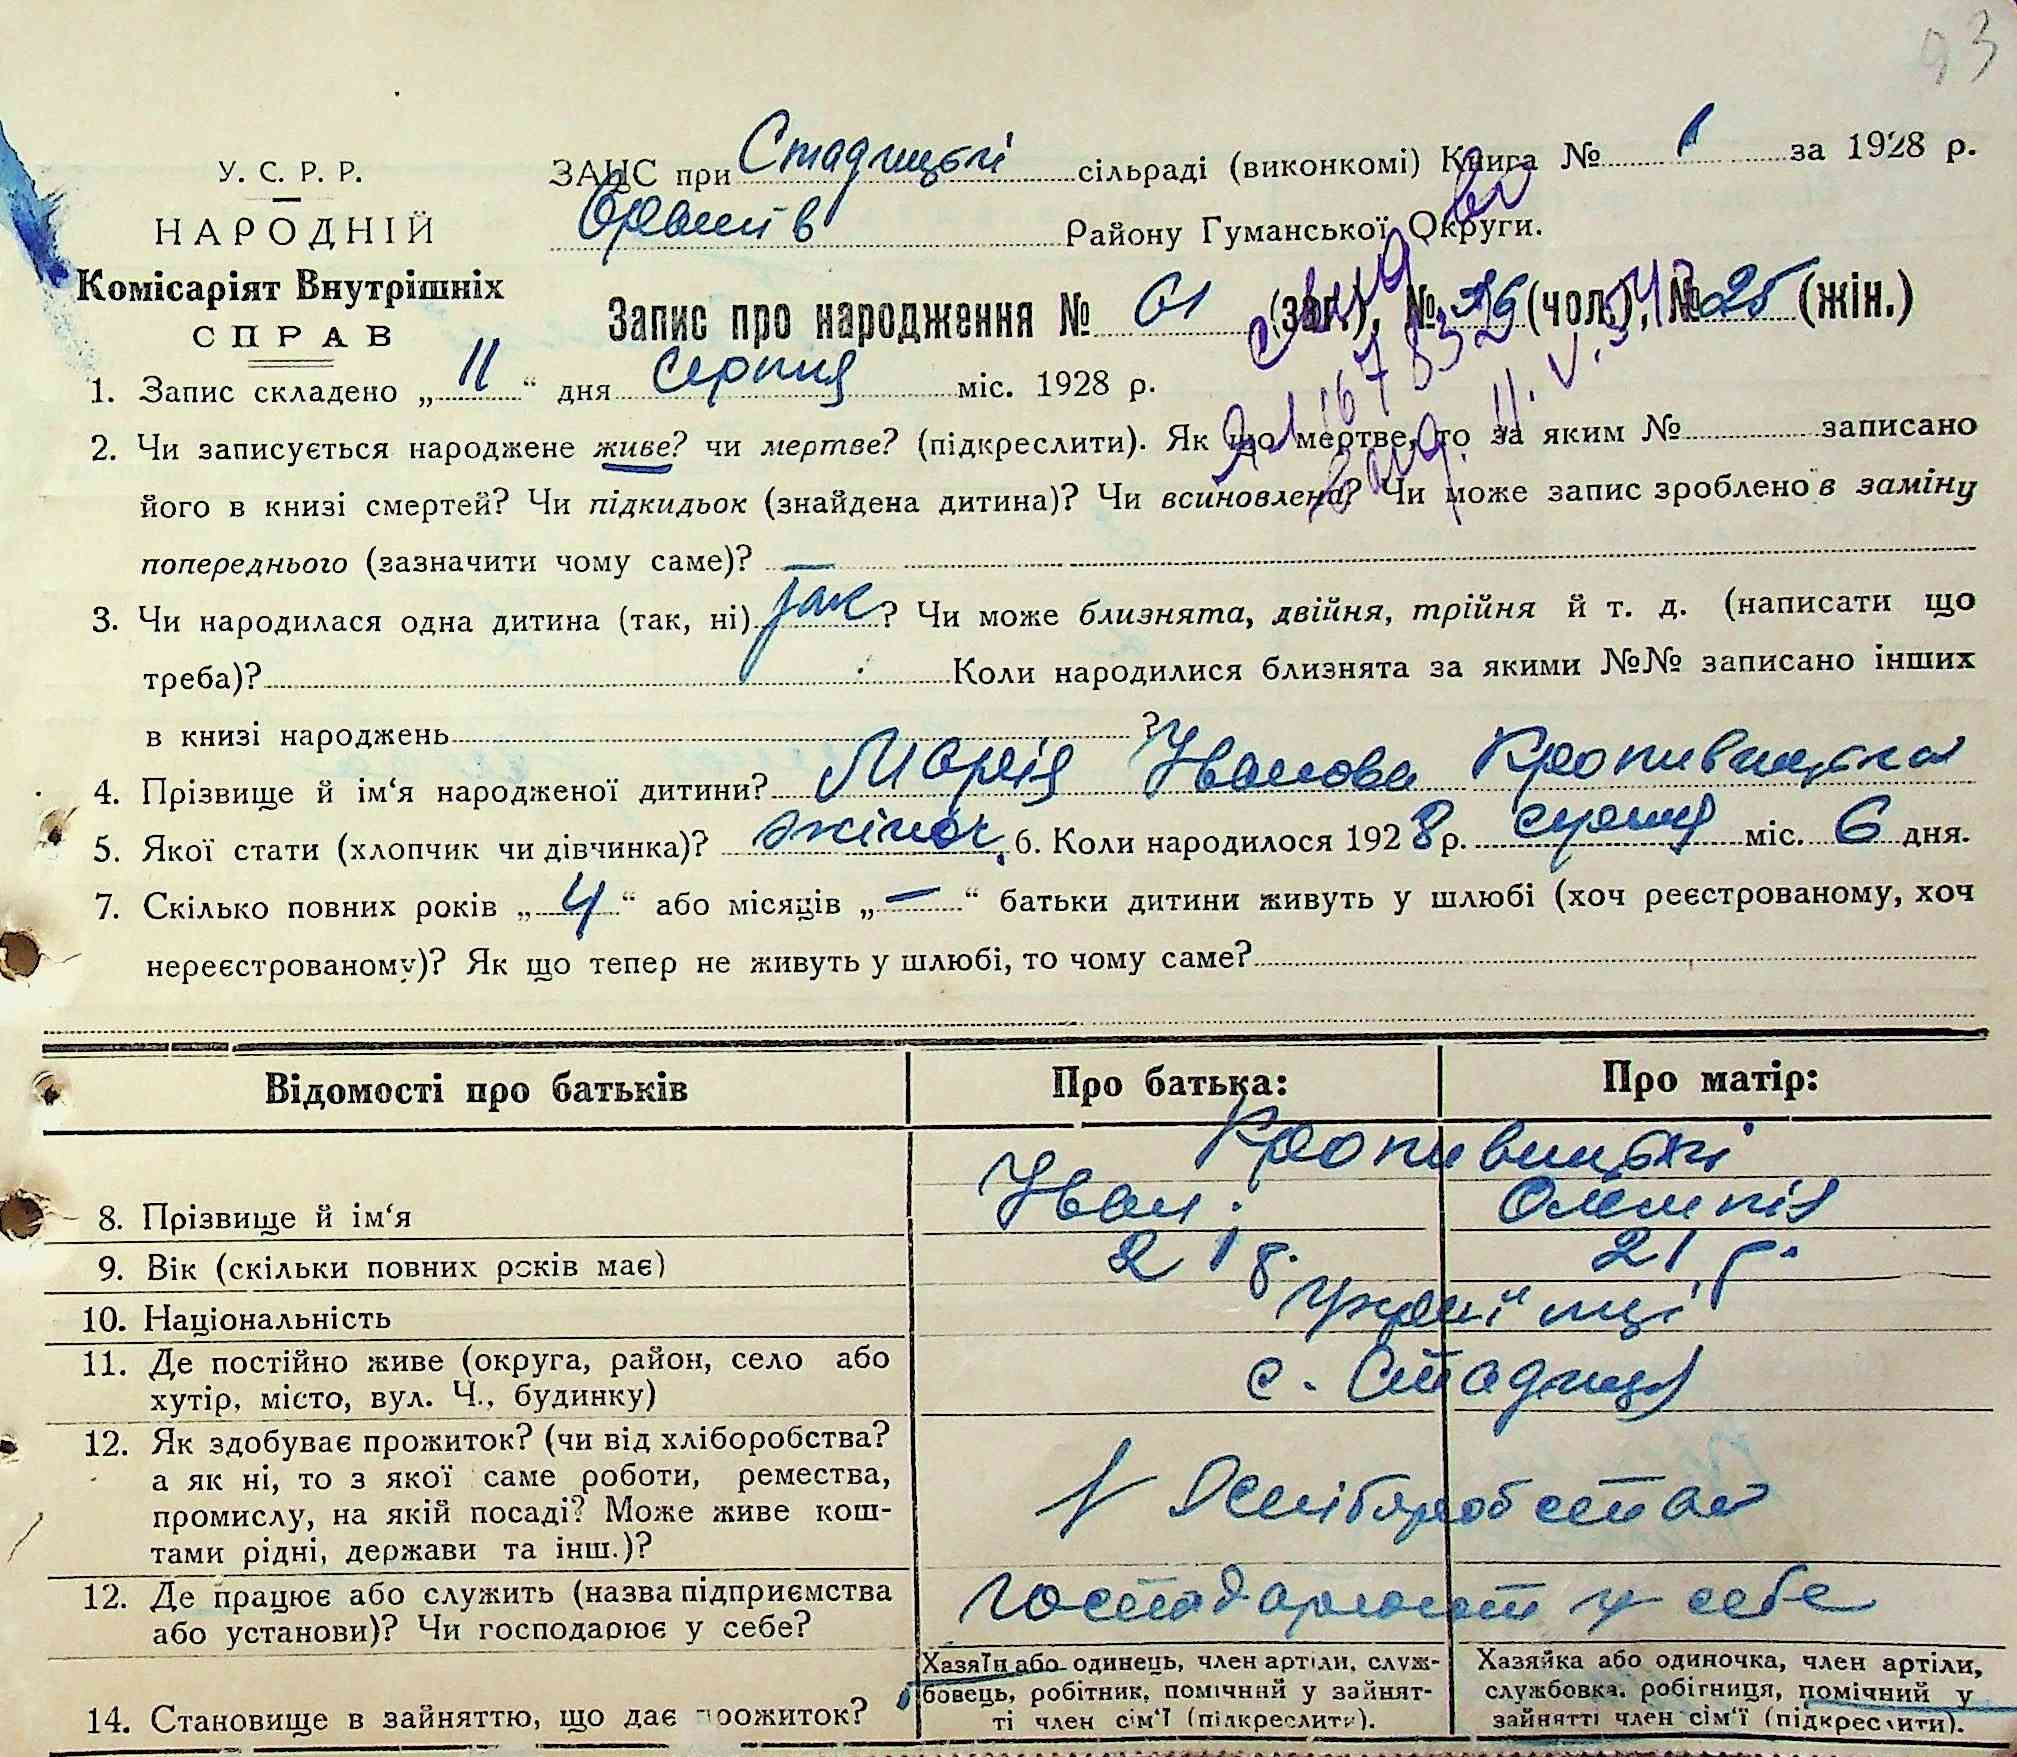 93
У. С. Р. Р.
НАРОДНІЙ
Комісаріят Внутрішніх
СПРАВ
ЗАГС при Стадницькі сільраді (виконкомі) Книга № 1 за 1928 р.
Району Гуманської Округи.
Запис про народження № 61 (заг), № (чол.), № 25 (жін.)
1. Запис складено „ 11 “ дня серпня міс. 1928 р.
2. Чи записується народжене живе? чи мертве? (підкреслити). Як що мертве, то за яким № записано
його в книзі смертей? Чи підкидьок (знайдена дитина)? Чи всиновлена? Чи може запис зроблено в заміну
попереднього (зазначити чому саме)? —
3. Чи народилася одна дитина (так, ні) так ? Чи може близнята, двійня, трійня й т. д. (написати що
треба)? Коли народилися близнята за якими №№ записано інших
в книзі народжень ?
4. Прізвище й ім‘я народженої дитини? Марія Іванова Кропивницка
5. Якої статі (хлопчик чи дівчинка)? жіноч. 6. Коли народилося 1928 р. серпня міс. 6 дня.
7. Скілько повних років „ 4 “ або місяців „ — “ батьки дитини живуть у шлюбі (хоч реєстрованому, хоч
нереєстрованому)? Як що тепер не живуть у шлюбі, то чому саме?
Відомості про батьків Про батька: Про матір:
Кропивницькі
8. Прізвище й ім‘я Іван Олімпія
9. Вік (скільки повних років має) 21 р. 21 р.
10. Національність Українці
11. Де постійно живе (округа, район, село або
хутір, місто, вул. Ч., будинку) с. Стадниця
12. Як здобуває прожиток? (чи від хліборобства?
а як ні, то з якої саме роботи, ремества,
промислу, на якій посаді? Може живе кош-
тами рідні, держави та інш.)?
12. Де працює або служить (назва підприємства
або установи)? Чи господарює у себе? господарюют у себе
14. Становище в зайняттю, що дає прожиток?
Хазяїн або одинець, член артіли, служ-
бовець, робітник, помічний у зайнят-
ті член сім‘ї (підкреслити).
Хазяйка або одиночка, член артіли,
службовка, робітниця, помічний у
зайнятті член сім‘ї (підкреслити).